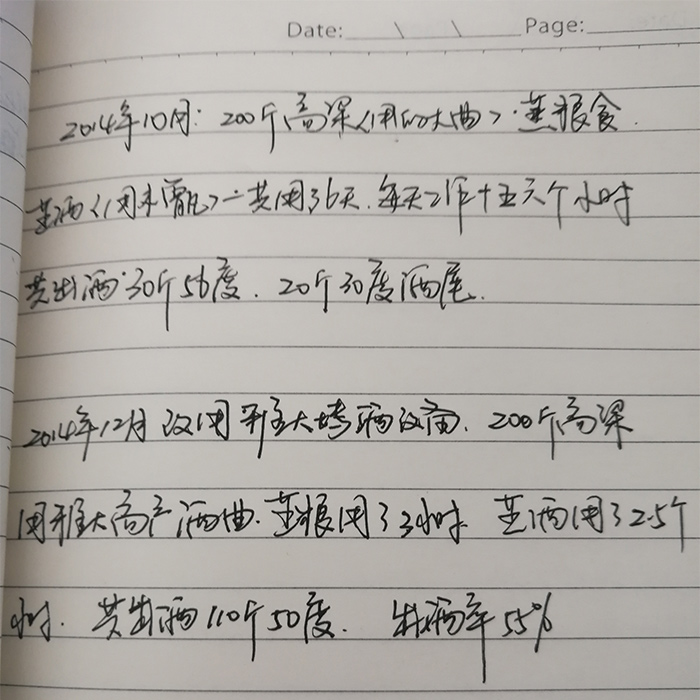 Date: \ \ Page:
2014年10月: 200斤高粱<用的大曲>.蒸粮食.
蒸酒<用木甑>一共用了6天.每天工作十五六个小时
共出酒:30斤56度. 20斤30度酒尾.
2014年12月改用雅大烤酒设备. 200斤高粱
用雅大高产酒曲.蒸粮用了3小时 蒸酒用了2.5个
小时. 共出酒110斤50度. 出酒率55%